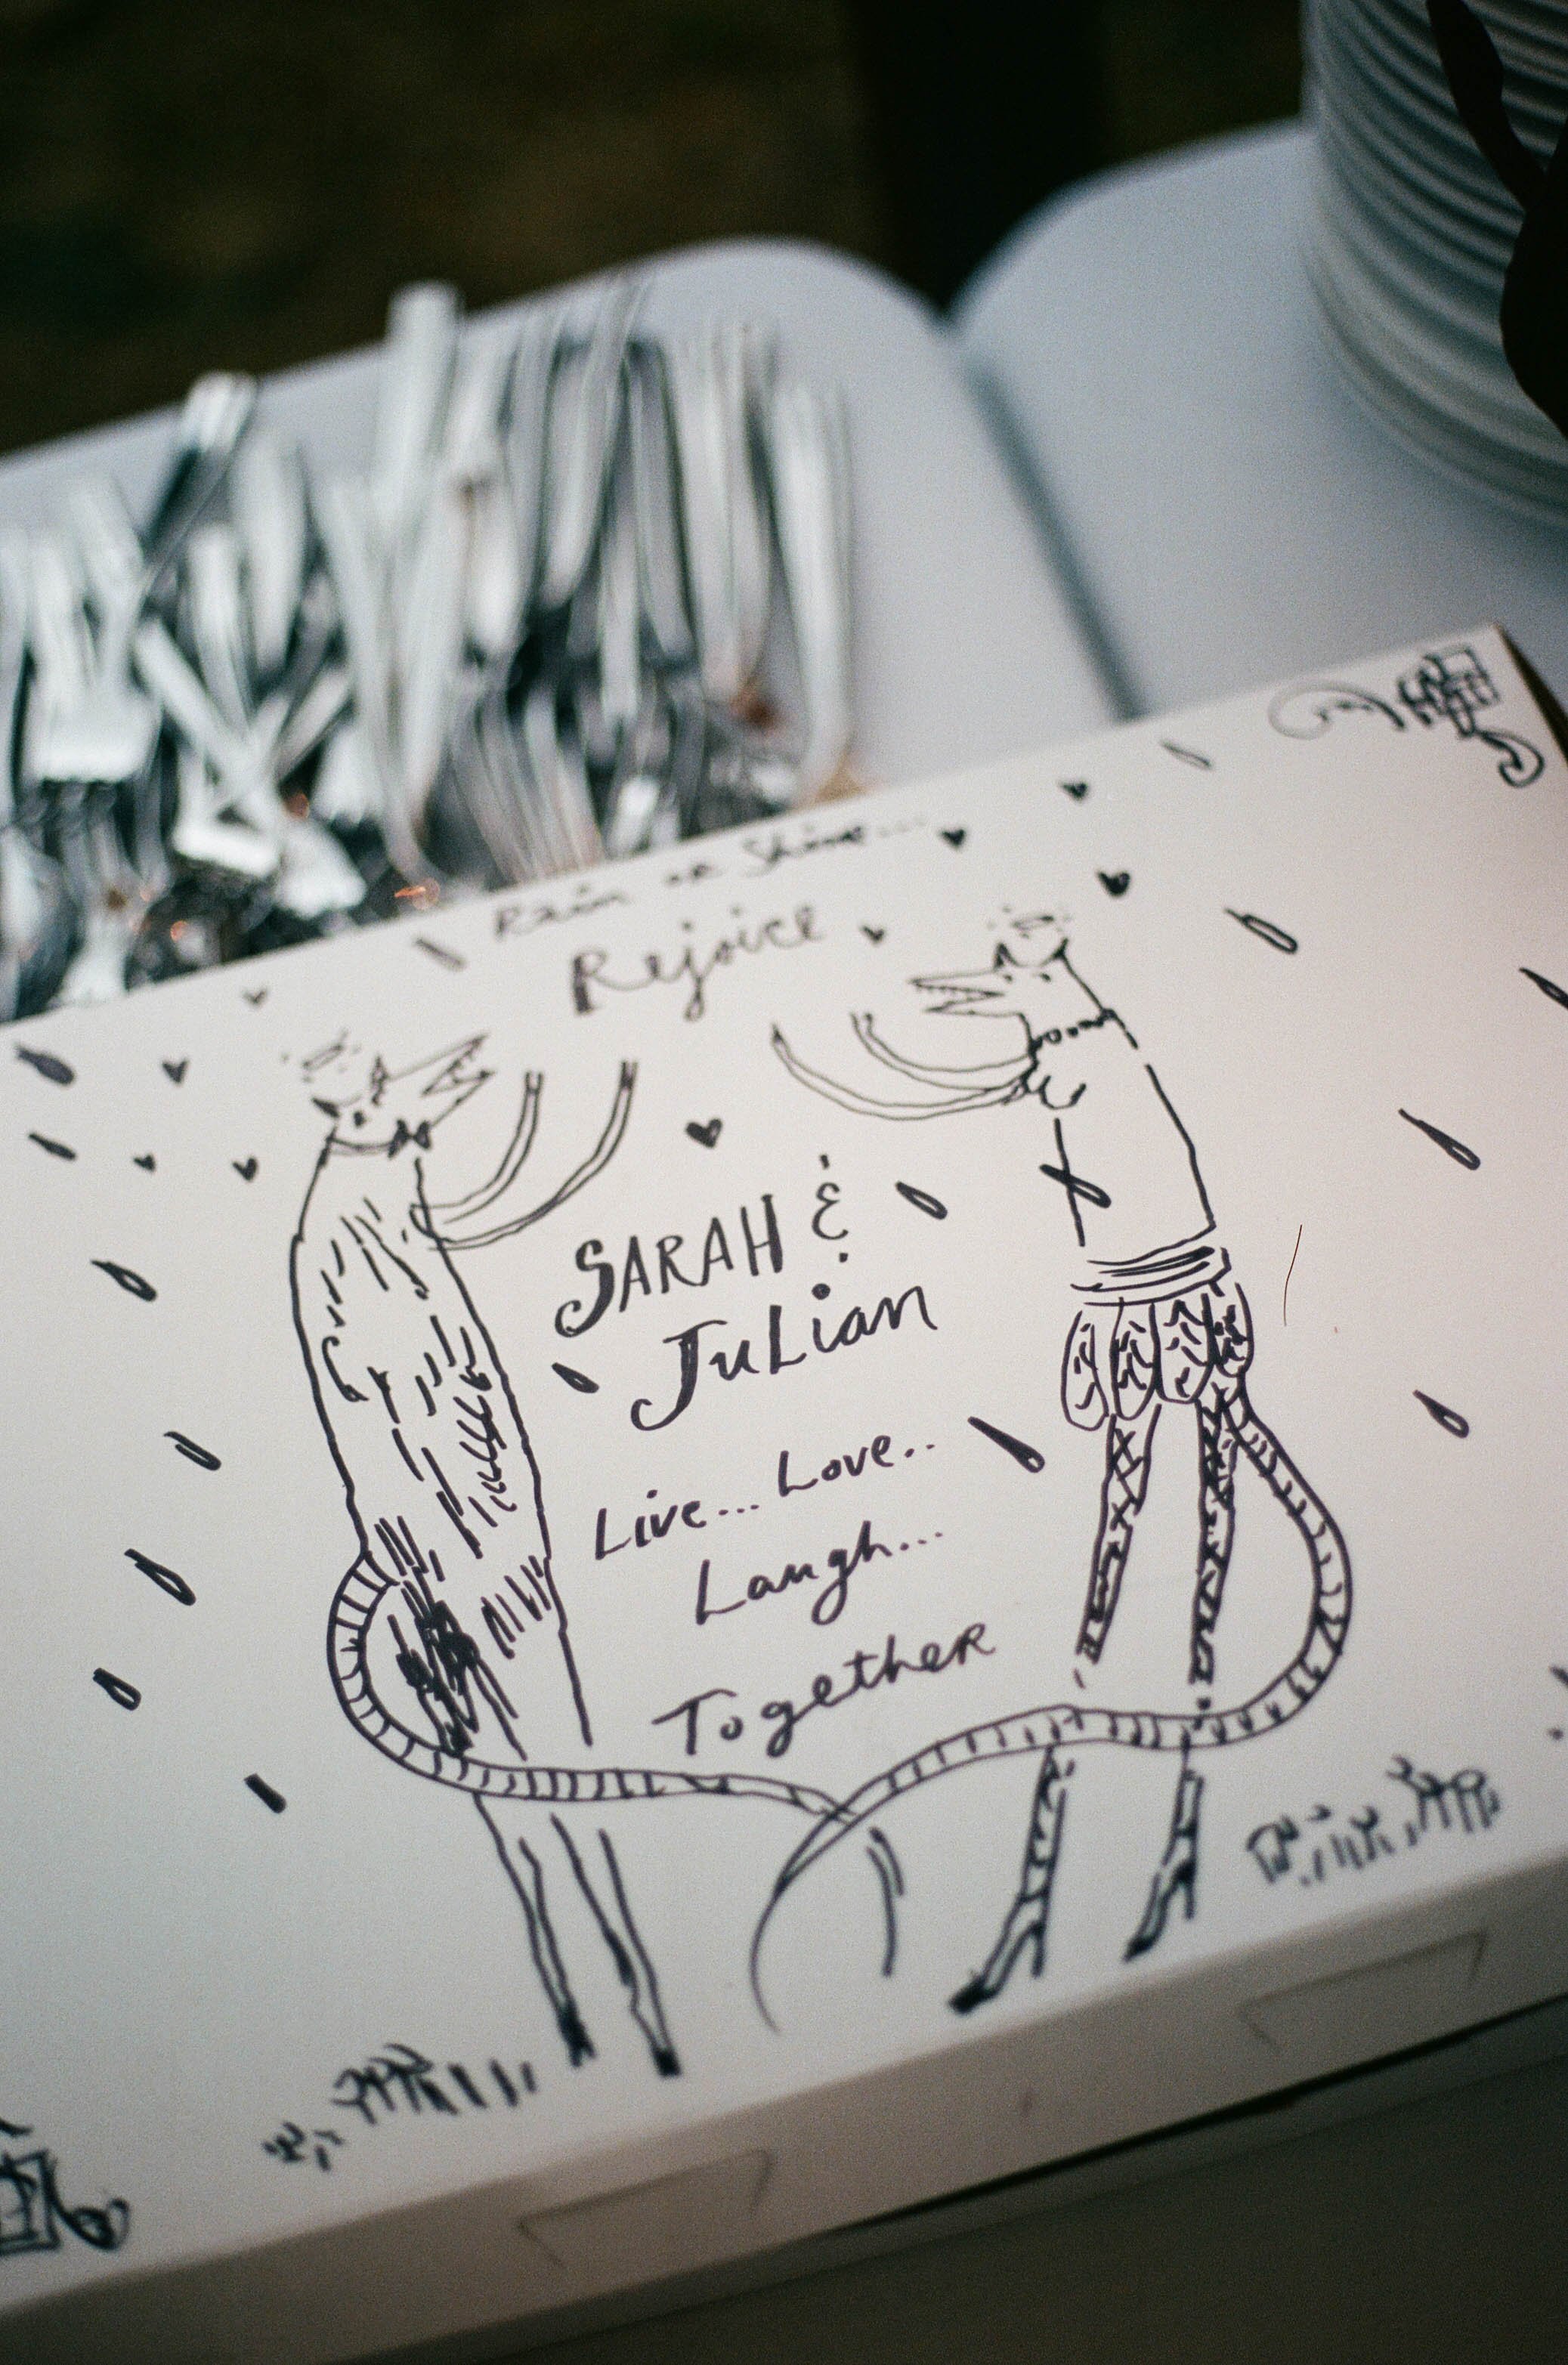 Rain or Shine...
Rejoice
SARAH &
JuLian
Live... Love..
Laugh...
Together